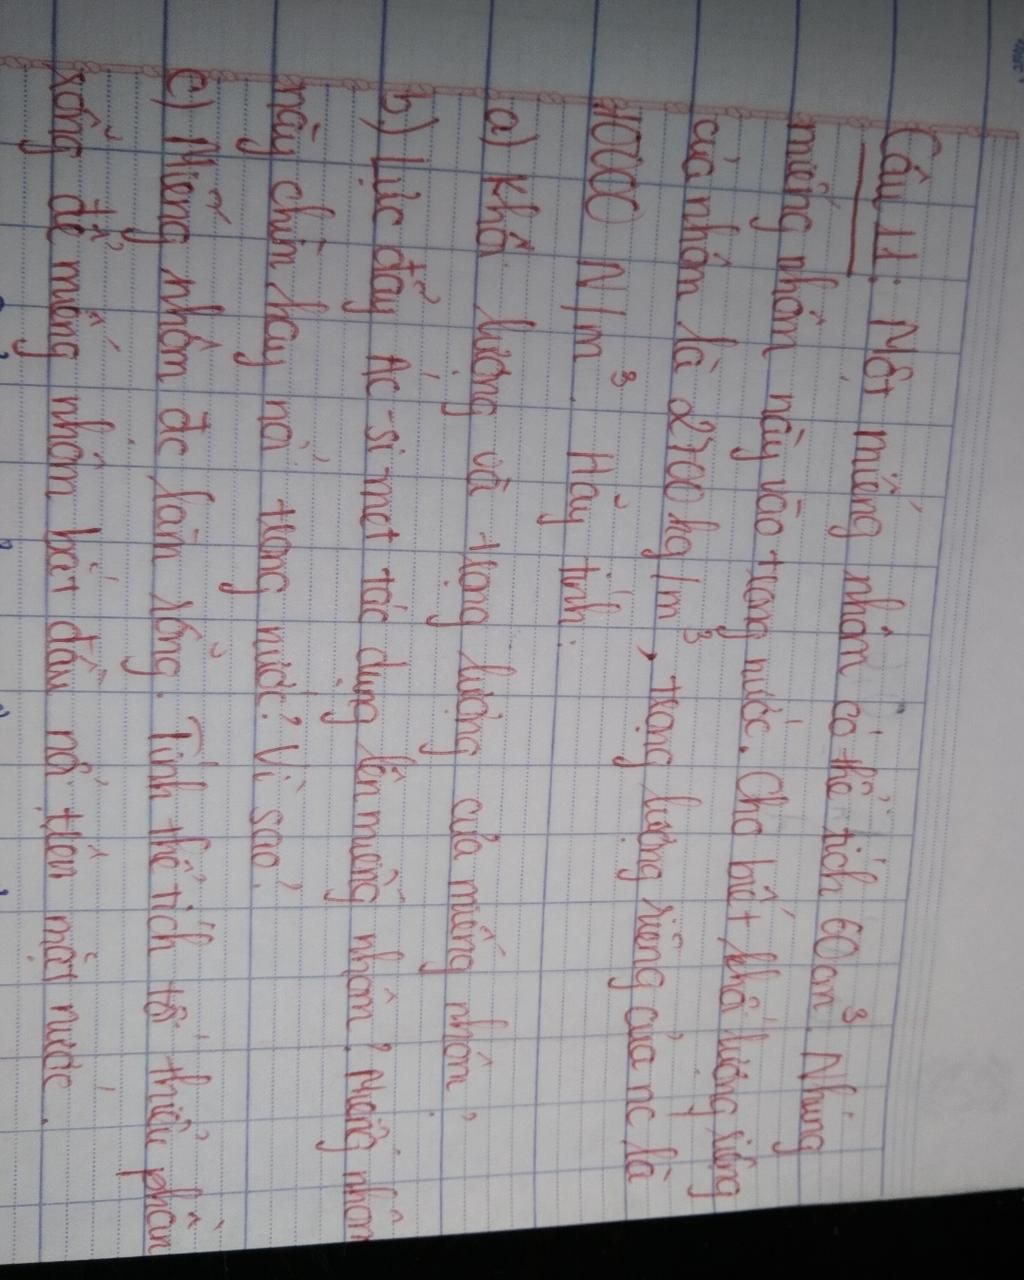 Câu 11: Một miếng nhôm có thể tích 60cm³. Nhúng
miếng nhôm này vào trong nước. Cho biết khối lượng riêng
của nhôm là 2700kg/m³, trọng lượng riêng của nc là
10000 N/m³. Hãy tính:
a) Khối lượng và trọng lượng của miếng nhôm?
b) Lực đẩy Ác-si-mét tác dụng lên miếng nhôm? Miếng nhôm
này chìm hay nổi trong nước? Vì sao?
c) Miếng nhôm đc làm rỗng. Tính thể tích tối thiểu phần
rỗng để miếng nhôm bắt đầu nổi trên mặt nước.